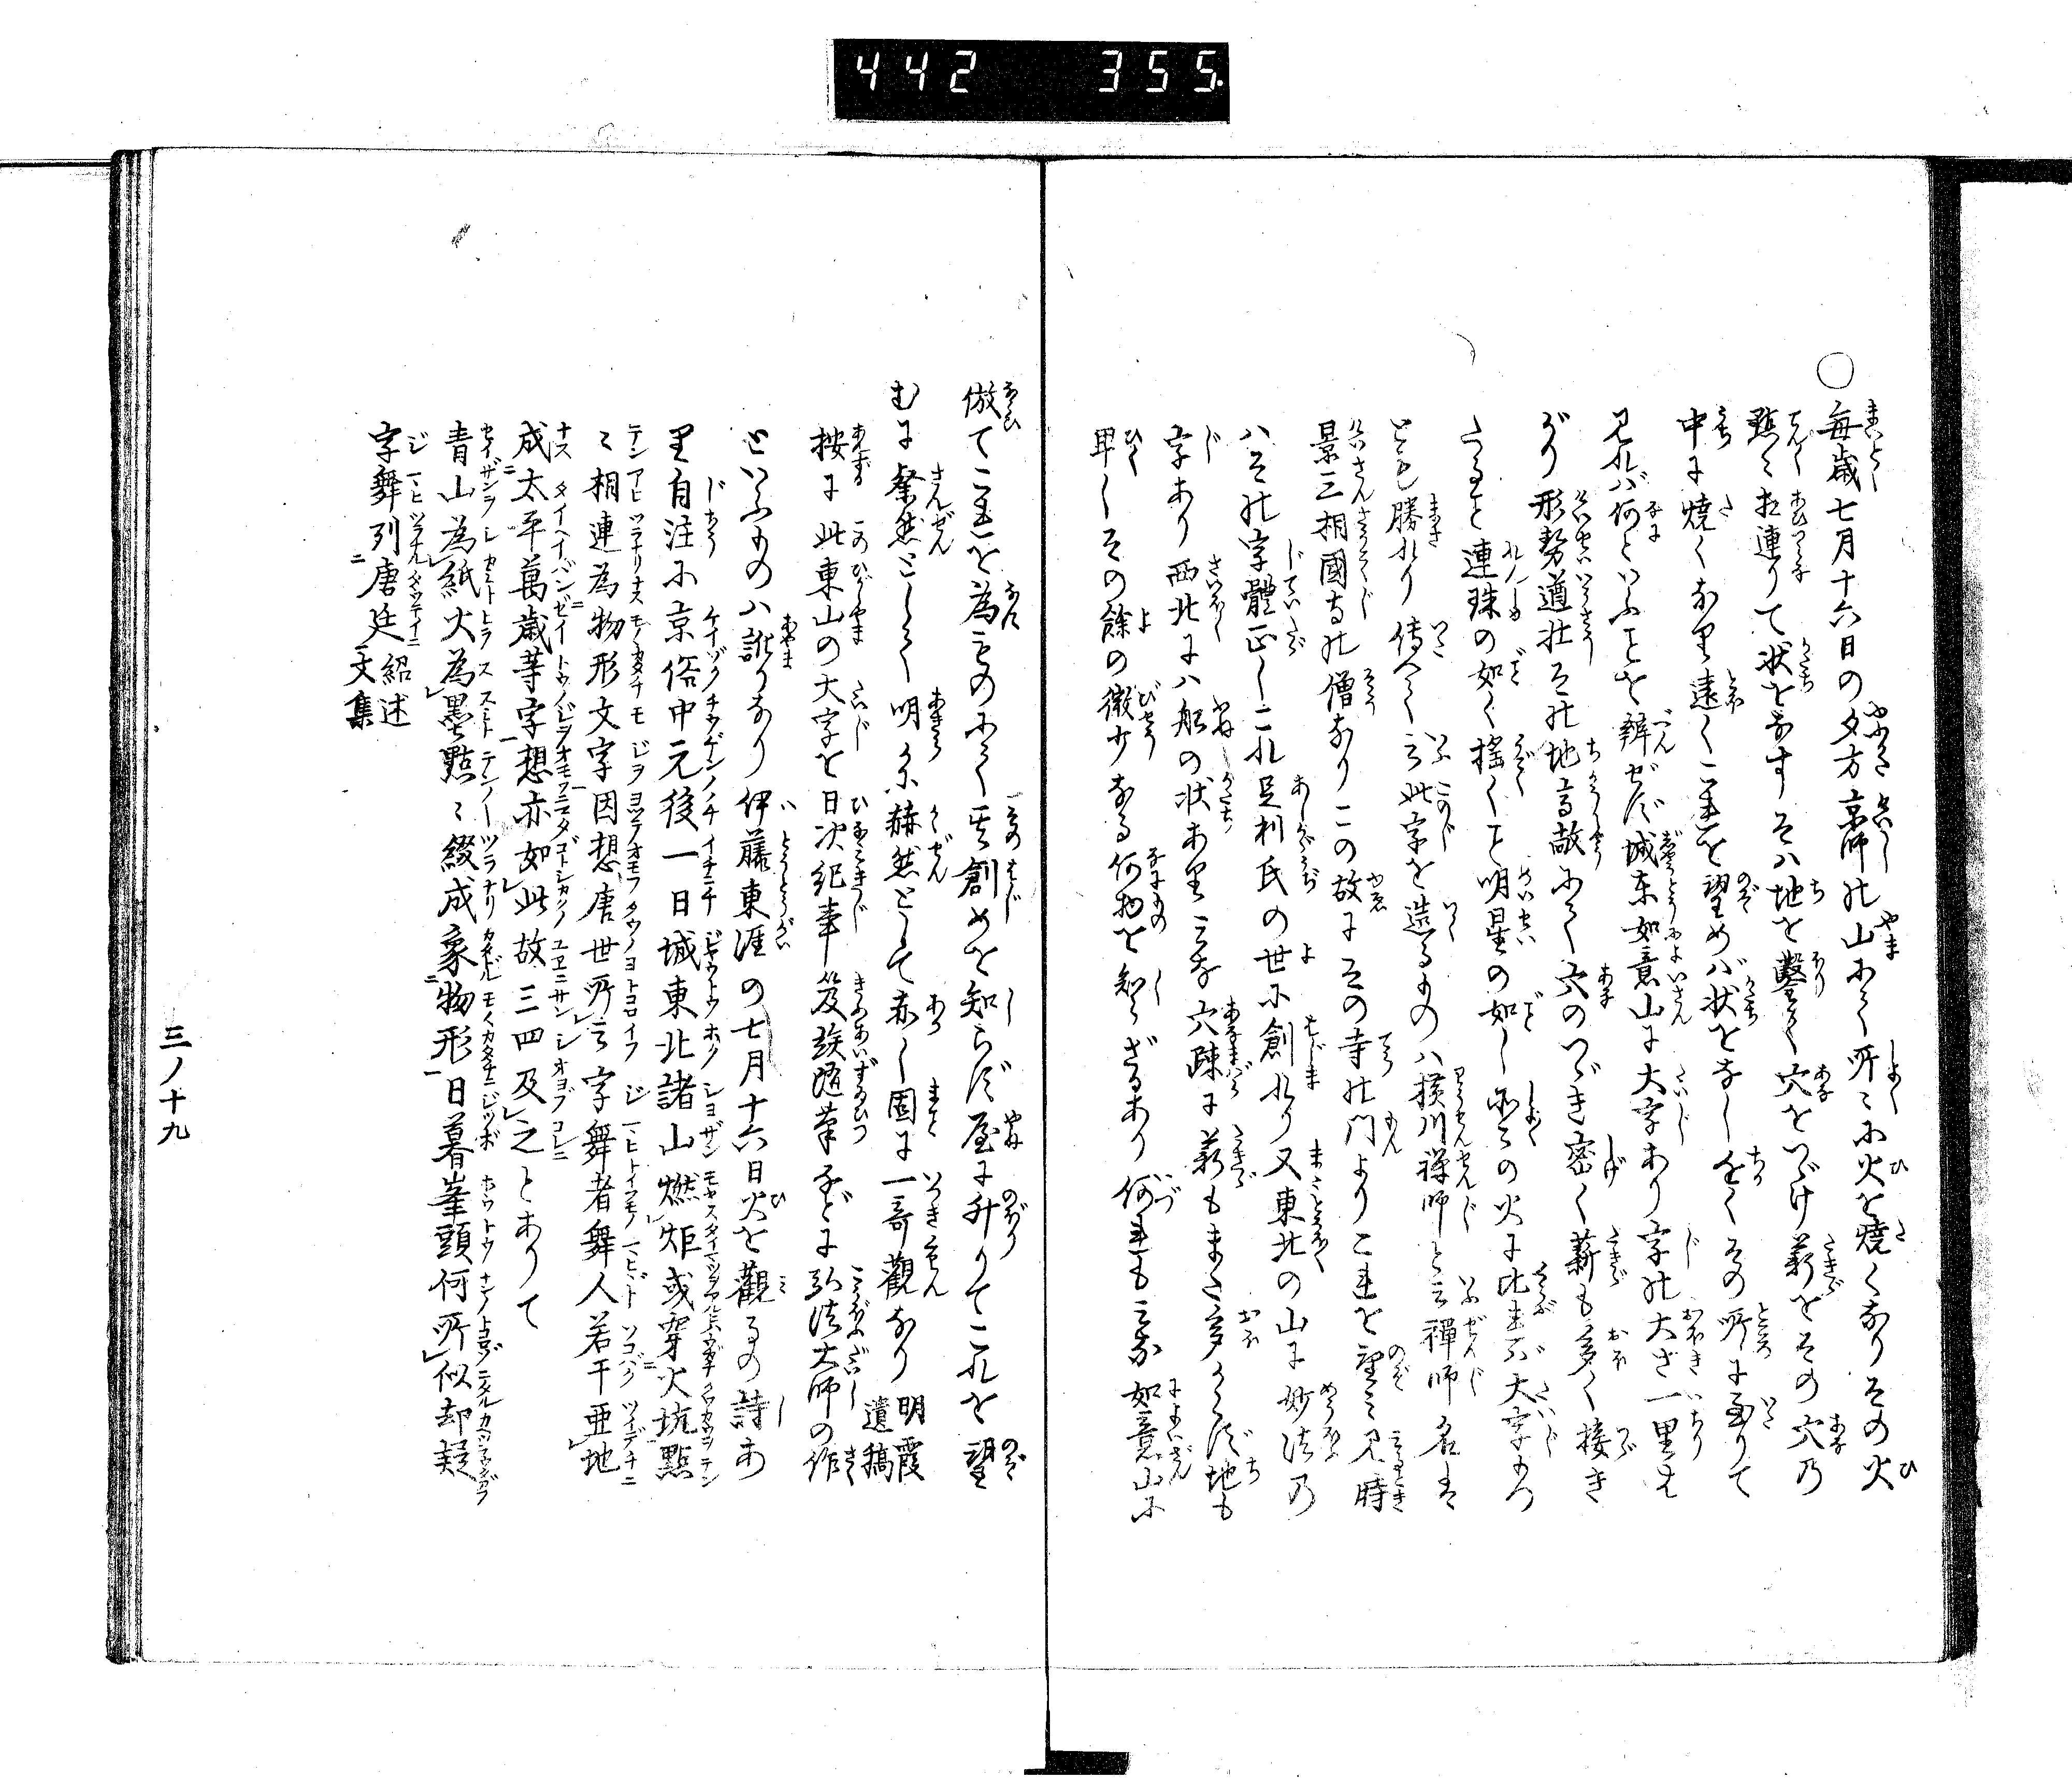 442 355.
○毎歳七月十六日の夕方京師の山にて所〻に火を焼くなりその火
點〻相連りて状をなすそは地を鑿て穴をつゞけ薪をその穴の
中に焼くなり遠くこれを望めば状をなし近くその所に至りて
見れば何といふことを辨ぜず城東如意山に大字あり字の大さ一里も
がり形勢遒壮その地高敞にて穴のつゞき密く薪も多く接き
たること連珠の如く揺くこと明星の如し所〻の火に比れば大字もつ
とも勝れり傳へて云此字を造るものは横川禅師と云禪師名は
景三相國寺の僧なりこの故にその寺の門よりこれを望み見時
はその字體正しこれ足利氏の世に創れり又東北の山に妙法の
字あり西北には船の状あり云々穴疎に薪もまた多からず地も
卑しその餘の微少なる何物を知らざるあり何れも云々如意山に
倣てこれを為ものにて其創めを知らず屋に升りてこれを望
むに粲然として明かに赫然として赤し固に一奇觀なり 明霞遺稿
按に此東山の大字を日次紀事笈埃随筆などに弘法大師の作
といふものは訛りなり伊藤東涯の七月十六日火を觀るの詩あ
り自注に京俗中元後一日城東北諸山燃炬或穿火坑點
〻相連為物形文字因想唐世所云字舞者舞人若干亜地
成太平萬歳等字想亦如此故三四及之とありて
青山為紙火為墨點〻綴成象物形日暮峯頭何所似却疑
字舞列唐廷 紹述文集
三ノ十九